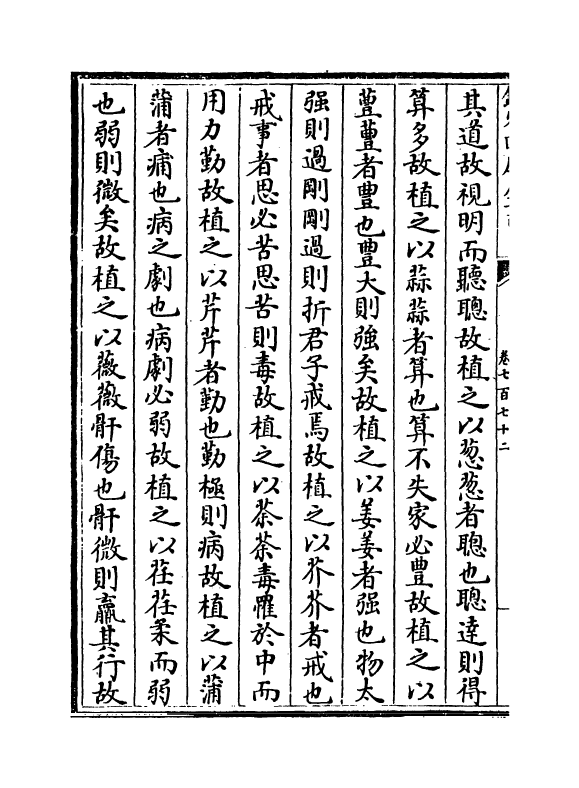 卷七百七十二
其道故視明而聽聰故植之以葱葱者聰也聰達則得
算多故植之以蒜蒜者算也算不失家必豊故植之以
蘴蘴者豊也豊大則強矣故植之以姜姜者强也物太
强則過剛剛過則折君子戒焉故植之以芥芥者戒也
戒事者思必苦思苦則毒故植之以荼荼毒罹於中而
用力勤故植之以芹芹者勤也勤極則病故植之以蒲
蒲者痡也病之劇也病劇必弱故植之以荏荏柔而弱
也弱則微矣故植之以薇薇骭傷也骭微則羸其行故